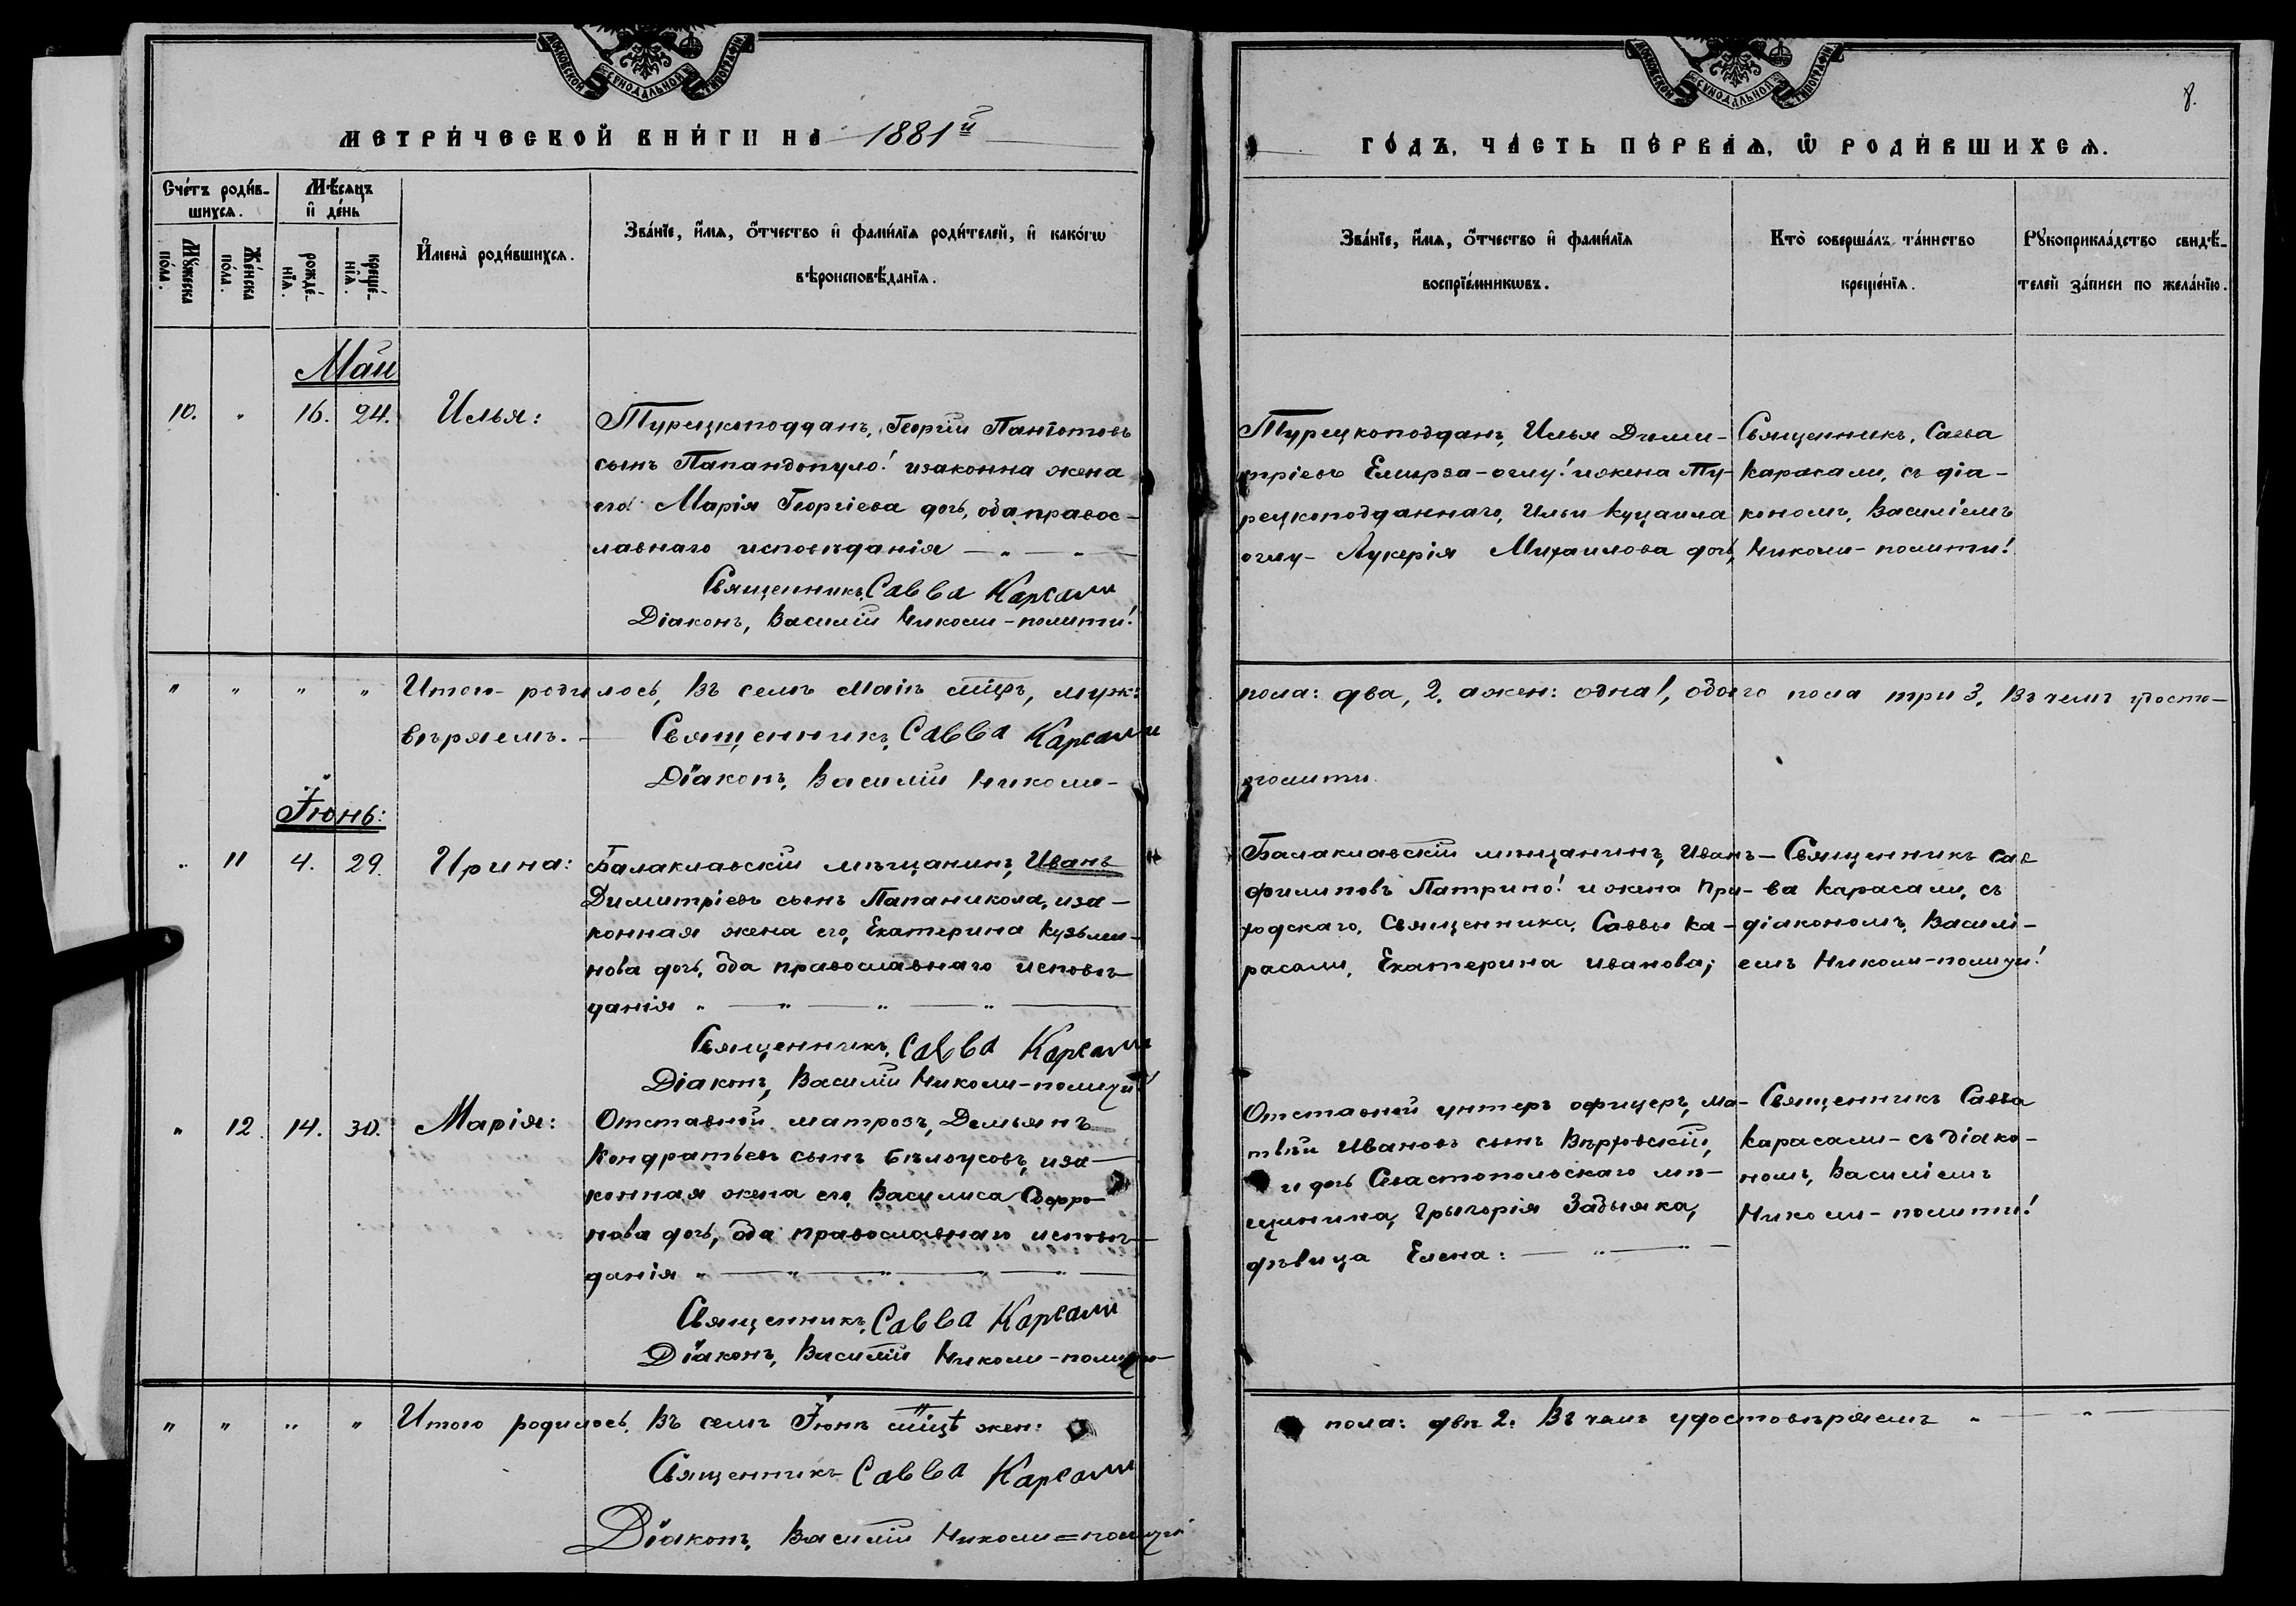 МОСКОВСКОЙ СѴНОДАЛЬНОЙ ТИПОГРАФІИ
МОСКОВСКОЙ СѴНОДАЛЬНОЙ ТИПОГРАФІИ
8.
МЕТРИ́ЧЕСКОЙ КНИ́ГИ НА 1881й
ГО́ДЪ, ЧА́СТЬ ПЕ́РВАѦ, Ѿ РОДИ́ВШИХСѦ.
Сче́тъ роди́в-
шихсѧ.
Мꙋ́жеска по́ла.
Же́нска по́ла.
Мѣ́сѧцъ
и҆ де́нь
рожде́-нїѧ.
креще́-нїѧ.
И҆мена̀ роди́вшихсѧ.
Зва́нїе, и҆́мѧ, ѻ҆́тчество и҆ фами́лїѧ роди́телей, и҆ како́гѡ
вѣроисповѣ́данїѧ.
Зва́нїе, и҆́мѧ, ѻ҆́тчество и҆ фами́лїѧ
воспрїе́мникѡвъ.
Кто̀ соверша́лъ та́инство
креще́нїѧ.
Рꙋкоприкла́дство свидѣ́-
телей за́писи по жела́нїю.
Маи
10. „ 16. 24. Илья:
Турецкоподдан, Георгій Панiотовъ
сынъ Папандопуло! изаконна жена
его! Марія Георгіева дочь, оба правос-
лавнаго исповѣданія — „ — „ —
Священникъ, Савва Карсали
Діаконъ, Василій Николи-полити!
Турецкоподдан, Илья Дими-
тріевъ Емирза-оглу! ижена Ту-
рецкоподданнаго, Ильи Куцаила
оглу- Лукерія Михаилова дочь,
Священникъ, Савва
Карасали, съ діа-
кономъ, Василіемъ
Николи-полити!
„ „ „ „ Итого-родилось, въ семъ Маіѣ мцѣ, муж:
пола: два, 2. ажен: одна!, обоего пола три 3. Въ чемъ удосто-
вѣряемъ. — Священникъ, Савва Карсали
Діаконъ, Василій Николи-
полити
Іюнь:
„ 11 4. 29. Ирина:
Балаклавскій мѣщанинъ, Иванъ
Димитріевъ сынъ Папаникола, иза-
конная жена его, Екатерина Кузьми-
нова дочь, оба православнаго исповѣ-
данія „ — „ — „ — „ —
Священникъ, Савва Карсали
Діаконъ, Василій Николи-полити!
Балаклавскій мѣщанинъ, Иванъ-
филиповъ Патрино! и жена При-
ходскаго, Священника, Саввы Ка-
расали, Екатерина Иванова;
Священникъ Сав
ва Карасали, съ
діакономъ, Василі-
емъ Николи-полити!
„ 12. 14. 30. Марія:
Отставной матрозъ, Демьянъ
Кондратьевъ сынъ Бѣлоусовъ, иза-
конная жена его, Василиса Софро
нова дочь, оба православнаго исповѣ-
данія „ — „ — „ — „ — „ —
Священникъ, Савва Карсали
Діаконъ, Василій Николи-полити
Отставной унтеръ офицеръ, Ма-
твѣй Ивановъ сынъ Верховскій,
и дочь Севастопольскаго мѣ-
щанина, Григорія Задыяка,
дѣвица Елена: — „ —
Священникъ Савва
Карасали-съ діако-
номъ, Василіемъ
Николи-полити!
„ „ „ „ Итого родилось, въ семъ Іюнѣ мцѣ жен:
пола: двѣ 2. Въ чемъ удостовѣряемъ „ — „ —
Священникъ Савва Карсали
Діаконъ, Василій Николи=полити